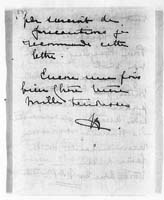 par surcroit de
précautions je
recommande cette
lettre.
Encore une fois
bien chère
mille tendresses